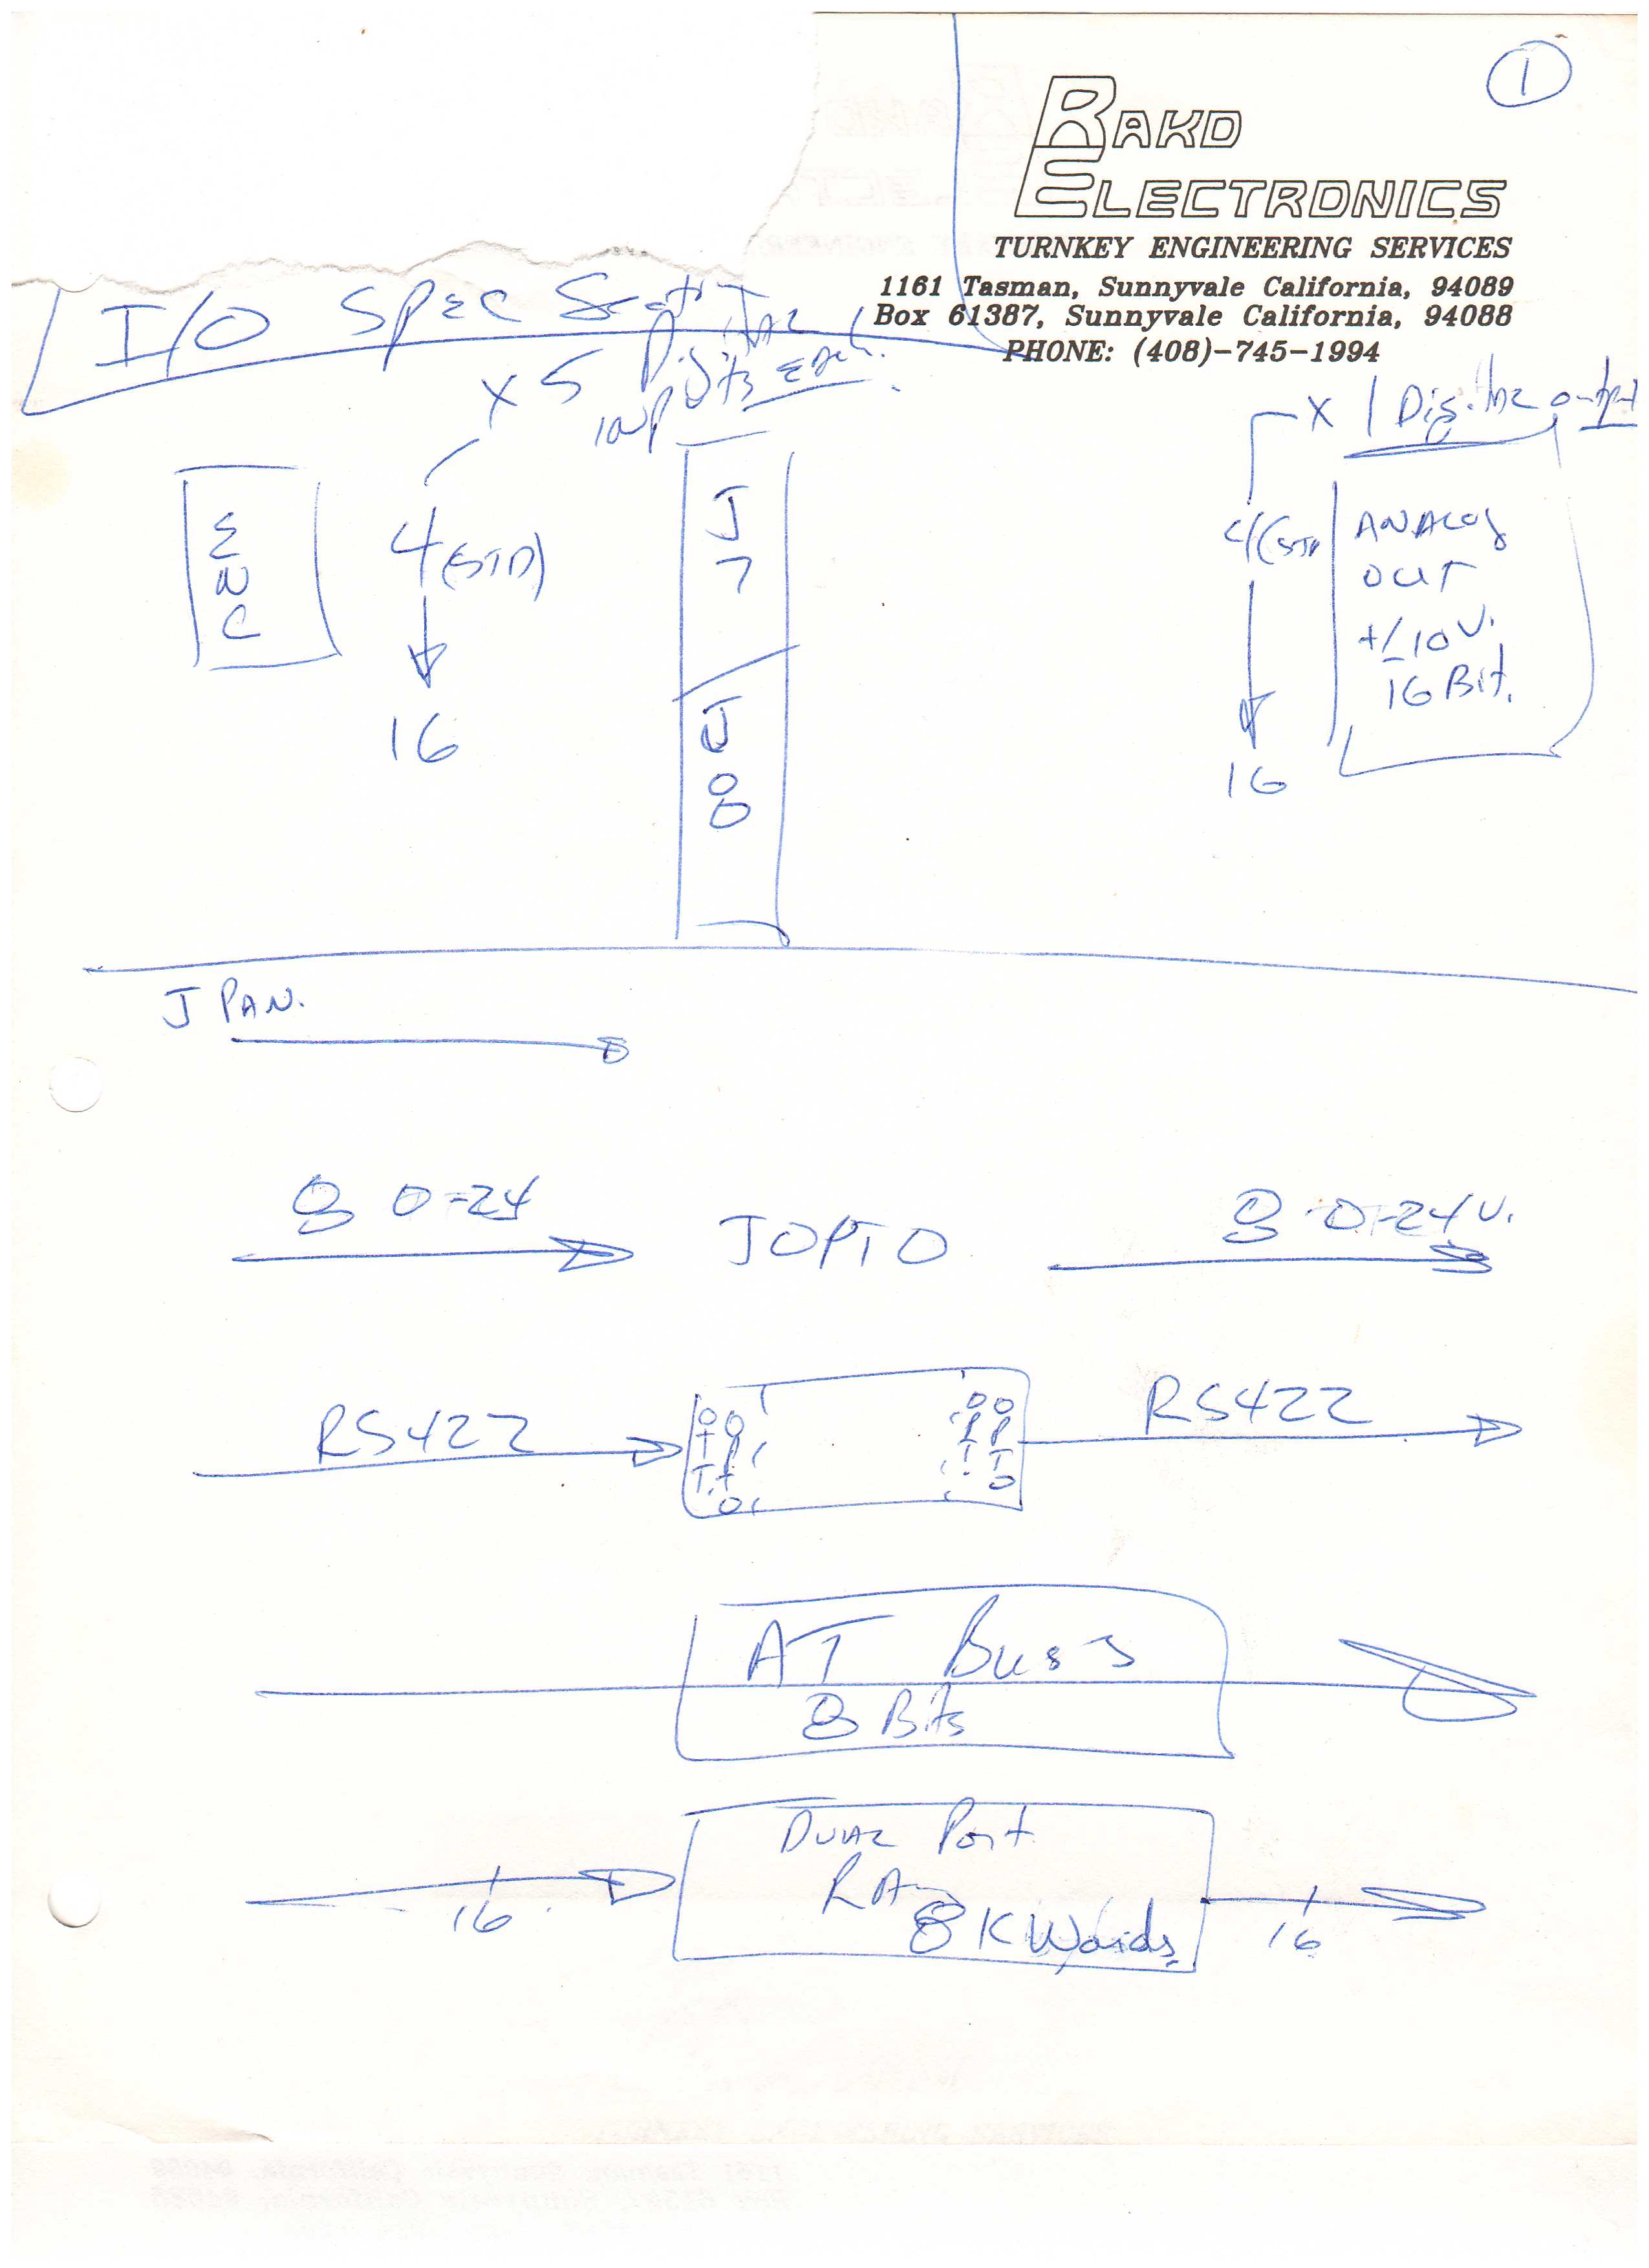 1
RAKO
ELECTRONICS
TURNKEY ENGINEERING SERVICES
1161 Tasman, Sunnyvale California, 94089
Box 61387, Sunnyvale California, 94088
PHONE: (408)-745-1994
I/O SPEC
x 5 Digital
inputs each.
x 1 Digital output
ENC
4 (STD)
16
J7
J8
4 (STD
16
ANALOG
OUT
+/- 10 V.
16 Bit.
J PAN.
8 0-24
JOPTO
8 0-24 V.
RS422
OPTO
OPTO
RS422
AT Buss
8 Bits
Dual Port
RAM
8K Words
16
16